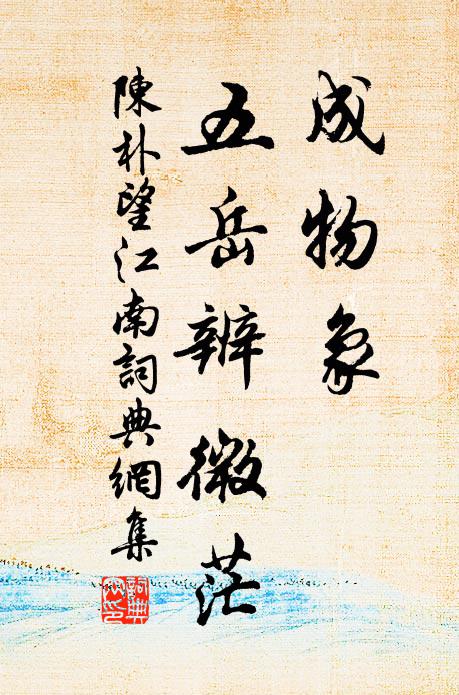 成物象
五岳辨微茫
陳朴望江南詞典網集